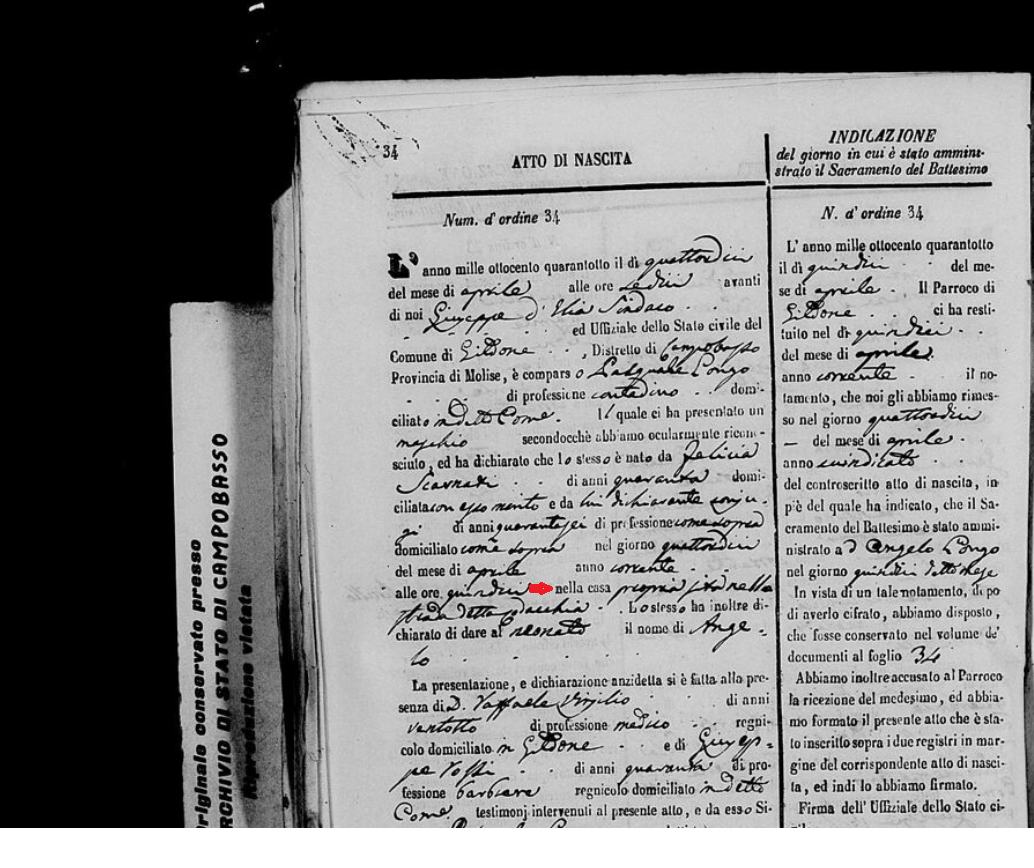 34
ATTO DI NASCITA
Num. d' ordine 34
L' anno mille ottocento quarantotto il dì quattordici
del mese di aprile alle ore sedici avanti
di noi Giuseppe d' Elia Sindaco
ed Uffiziale dello Stato civile del
Comune di Gildone , Distretto di Campobasso
Provincia di Molise, è compars o Pasquale Longo
di professione contadino domi-
ciliato in detto Come. Il quale ci ha presentato un
maschio secondocchè abbiamo ocularmente ricono-
sciuto, ed ha dichiarato che lo stesso è nato da Felicia
di anni quaranta domi-
ciliata con esso marito e da lui dichiarante conju-
gi di anni quarantasei di professione come sopra
domiciliato come sopra nel giorno quattordici
del mese di aprile anno corrente
alle ore quindici nella casa propria sita nella
strada detta . Lo stesso ha inoltre di-
chiarato di dare al neonato il nome di Ange-
lo
La presentazione, e dichiarazione anzidetta si è fatta alla pre-
senza di D. Raffaele Virgilio di anni
ventotto di professione medico regni-
colo domiciliato in Gildone e di Giusep-
pe Rossi di anni quaranta di pro-
fessione barbiere regnicolo domiciliato in detto
Come. testimonj intervenuti al presente atto, e da esso Si-
INDICAZIONE
del giorno in cui è stato ammini-
strato il Sacramento del Battesimo
N. d' ordine 34
L' anno mille ottocento quarantotto
il dì quindici del me-
se di aprile . Il Parroco di
Gildone ci ha resti-
tuito nel dì quindici
del mese di aprile
anno corrente il no-
tamento, che noi gli abbiamo rimes-
so nel giorno quattordici
— del mese di aprile
anno suindicato
del controscritto atto di nascita, in
piè del quale ha indicato, che il Sa-
cramento del Battesimo è stato ammi-
nistrato a D Angelo Longo
nel giorno quindici detto mese
In vista di un tale notamento, dopo
di averlo cifrato, abbiamo disposto,
che fosse conservato nel volume de'
documenti al foglio 34
Abbiamo inoltre accusato al Parroco
la ricezione del medesimo, ed abbia-
mo formato il presente atto che è sta-
to inscritto sopra i due registri in mar-
gine del corrispondente atto di nasci-
ta, ed indi lo abbiamo firmato.
Firma dell' Uffiziale dello Stato ci-
originale conservato presso
ARCHIVIO DI STATO DI CAMPOBASSO
Riproduzione vietata